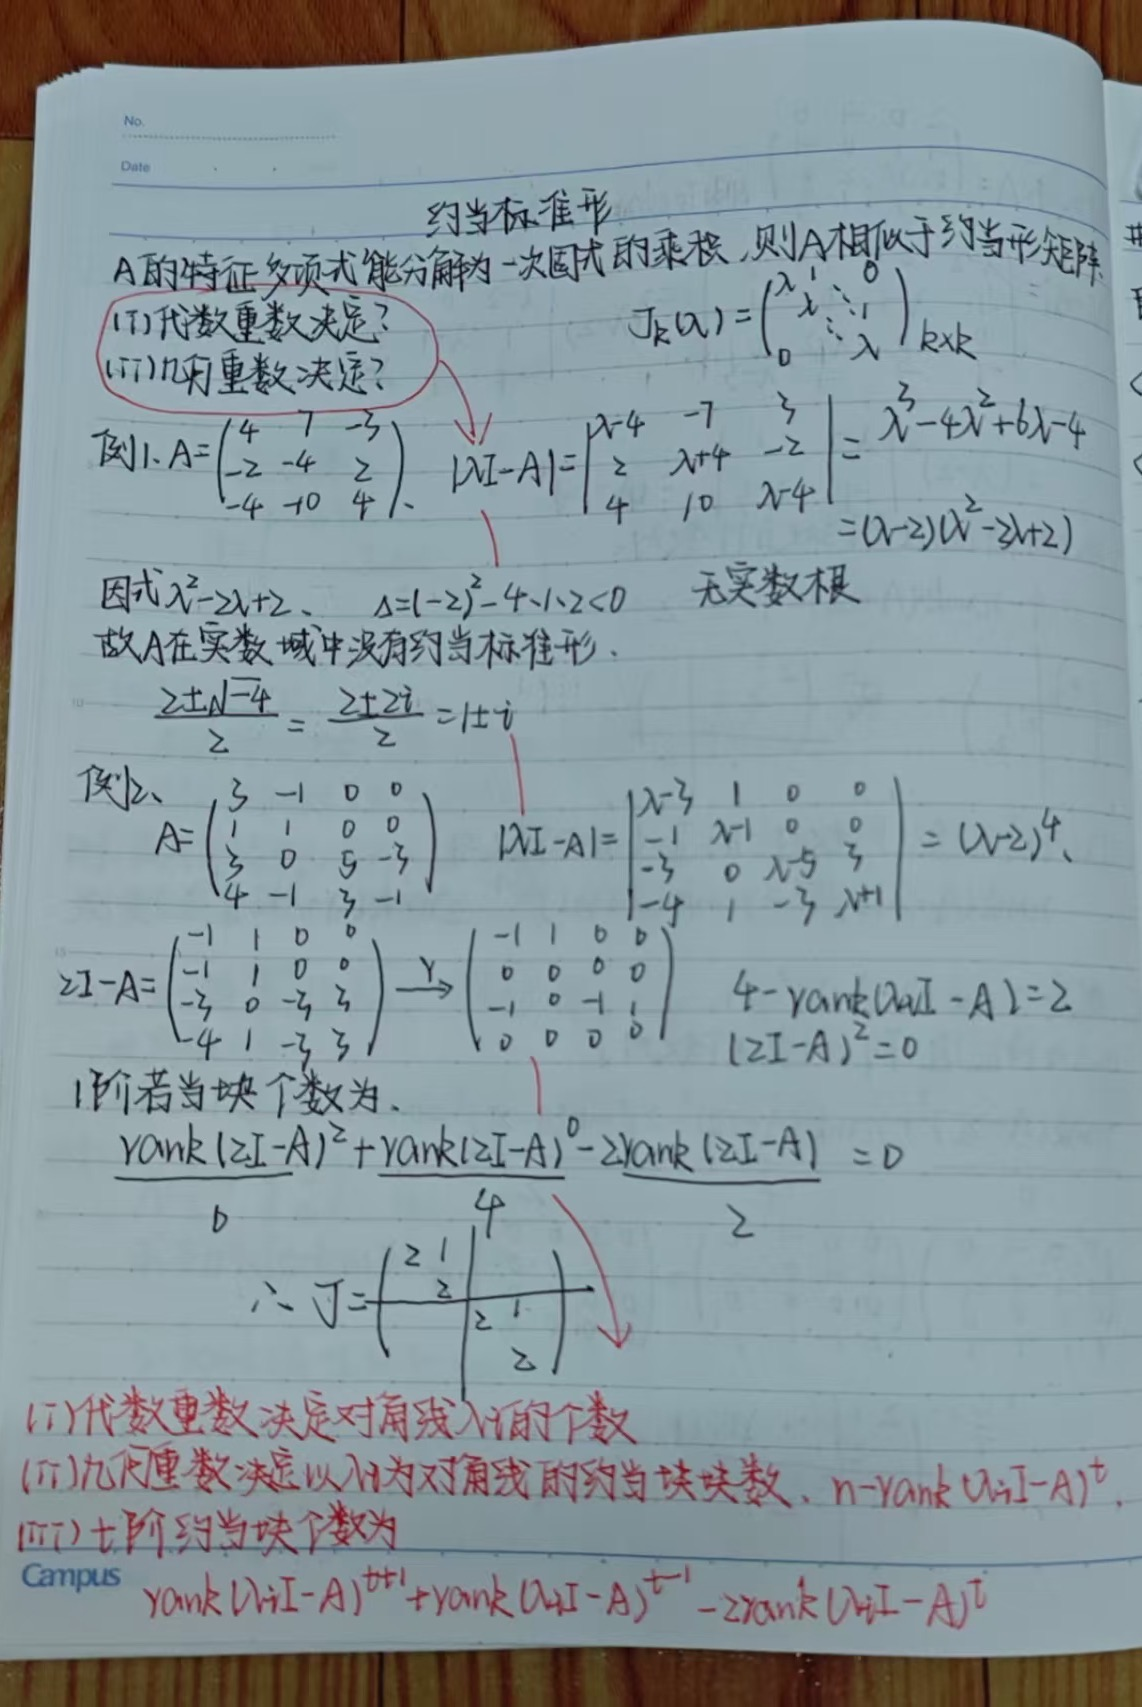 No.
Date
约当标准形
A的特征多项式能分解为一次因式的乘积,则A相似于约当形矩阵.
(i)代数重数决定?
(ii)几何重数决定?
J_k(λ)=(λ 1 0
λ ⋱ 1
0 λ)k×k
例1、A=(4 7 -3
-2 -4 2
-4 -10 4)、
|λI-A|=|λ-4 -7 3
2 λ+4 -2
4 10 λ-4|=λ³-4λ²+6λ-4
=(λ-2)(λ²-2λ+2)
因式λ²-2λ+2、 Δ=(-2)²-4·1·2<0 无实数根
故A在实数域中没有约当标准形.
(2±√-4)/2=(2±2i)/2=1±i
例2、
A=(3 -1 0 0
1 1 0 0
3 0 5 -3
4 -1 3 -1)
|λI-A|=|λ-3 1 0 0
-1 λ-1 0 0
-3 0 λ-5 3
-4 1 -3 λ+1|=(λ-2)⁴、
2I-A=(-1 1 0 0
-1 1 0 0
-3 0 -3 3
-4 1 -3 3)
r→(-1 1 0 0
0 0 0 0
-1 0 -1 1
0 0 0 0)
4-rank(λiI-A)=2
(2I-A)²=0
1阶若当块个数为、
rank(2I-A)²+rank(2I-A)⁰-2rank(2I-A)=0
0 4 2
∴J=(2 1
2
2 1
2)
(i)代数重数决定对角线λi的个数
(ii)几何重数决定以λi为对角线的约当块块数、n-rank(λiI-A)^t.
(iii)t阶约当块个数为
Campus
rank(λiI-A)^{t+1}+rank(λiI-A)^{t-1}-2rank(λiI-A)^t